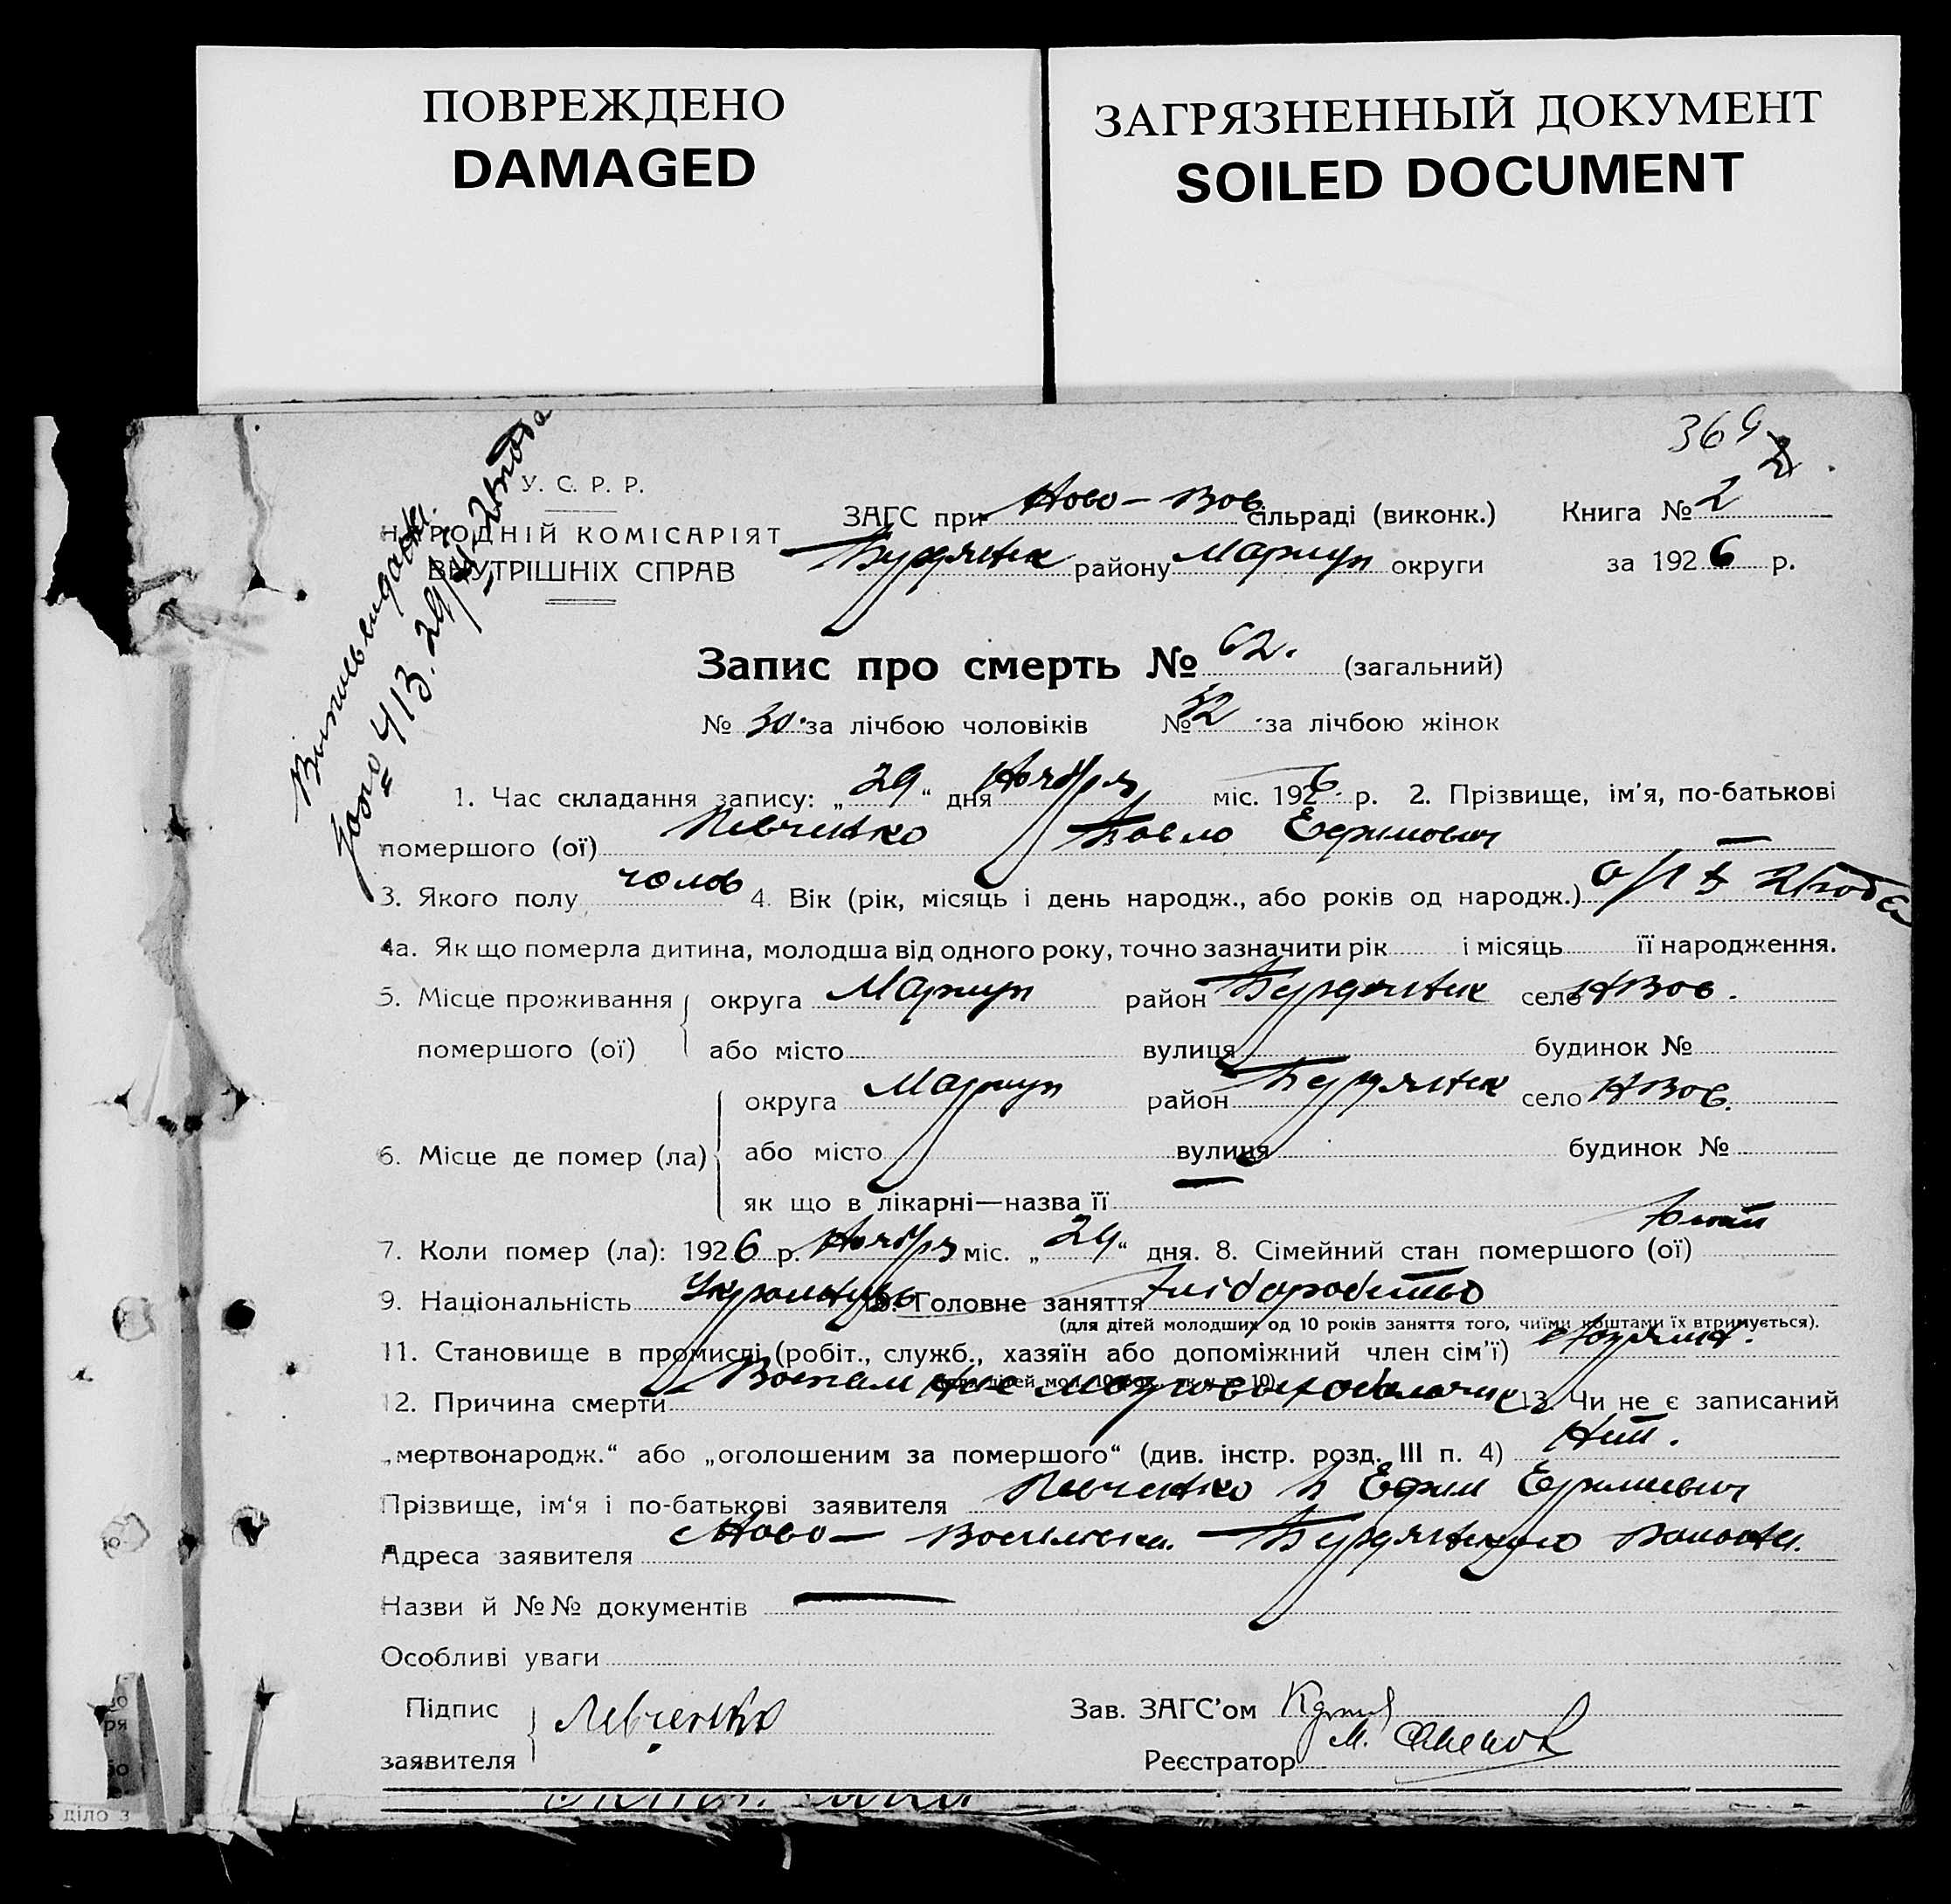 ПОВРЕЖДЕНО
DAMAGED
ЗАГРЯЗНЕННЫЙ ДОКУМЕНТ
SOILED DOCUMENT
У. С. Р. Р.
НАРОДНІЙ КОМІСАРІЯТ
ВНУТРІШНІХ СПРАВ
ЗАГС при Ново-Вас сільраді (виконк.)
району Мариуп округи
Книга № 2
за 1926 р.
Запис про смерть № 62. (загальний)
№ 30. за лічбою чоловіків № 32 за лічбою жінок
1. Час складання запису: „29“ дня Ноября міс. 1926 р. 2. Прізвище, ім'я, по-батькові
помершого (ої) Левченко Павло Ефимович
3. Якого полу чолов 4. Вік (рік, місяць і день народж., або років од народж.) 2 года
4а. Як що померла дитина, молодша від одного року, точно зазначити рік і місяць її народження.
5. Місце проживання округа Мариуп район село НВас.
помершого (ої) або місто вулиця будинок №
округа Мариуп район село НВас.
6. Місце де помер (ла) або місто вулиця будинок №
як що в лікарні—назва її —
7. Коли помер (ла): 1926 р. Ноября міс. „29“ дня. 8. Сімейний стан помершого (ої)
9. Національність Украінець 10. Головне заняття хліборобство
(для дітей молодших од 10 років заняття того, чиїми коштами їх втримується).
11. Становище в промислі (робіт., служб., хазяїн або допоміжний член сім'ї)
12. Причина смерти Воспаление мозговых оболочик 13. Чи не є записаний
„мертвонародж.“ або „оголошеним за помершого“ (див. інстр. розд. III п. 4) Нет.
Прізвище, ім'я і по-батькові заявителя Левченко Ефим Ефимович
Адреса заявителя Ново-Васильевка
Назви й №№ документів —
Особливі уваги
Підпис
заявителя Левченко
Зав. ЗАГС'ом
Реєстратор М.
діло з